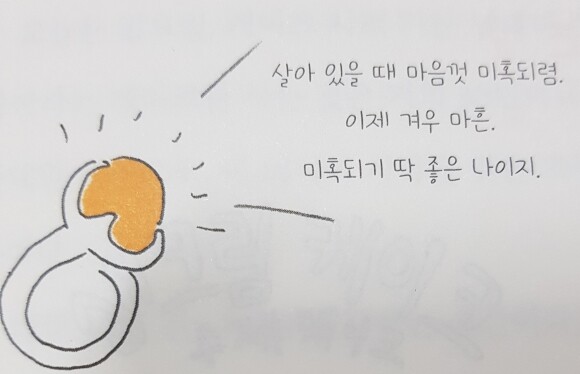 살아 있을 때 마음껏 미혹되렴.
이제 겨우 마흔.
미혹되기 딱 좋은 나이지.